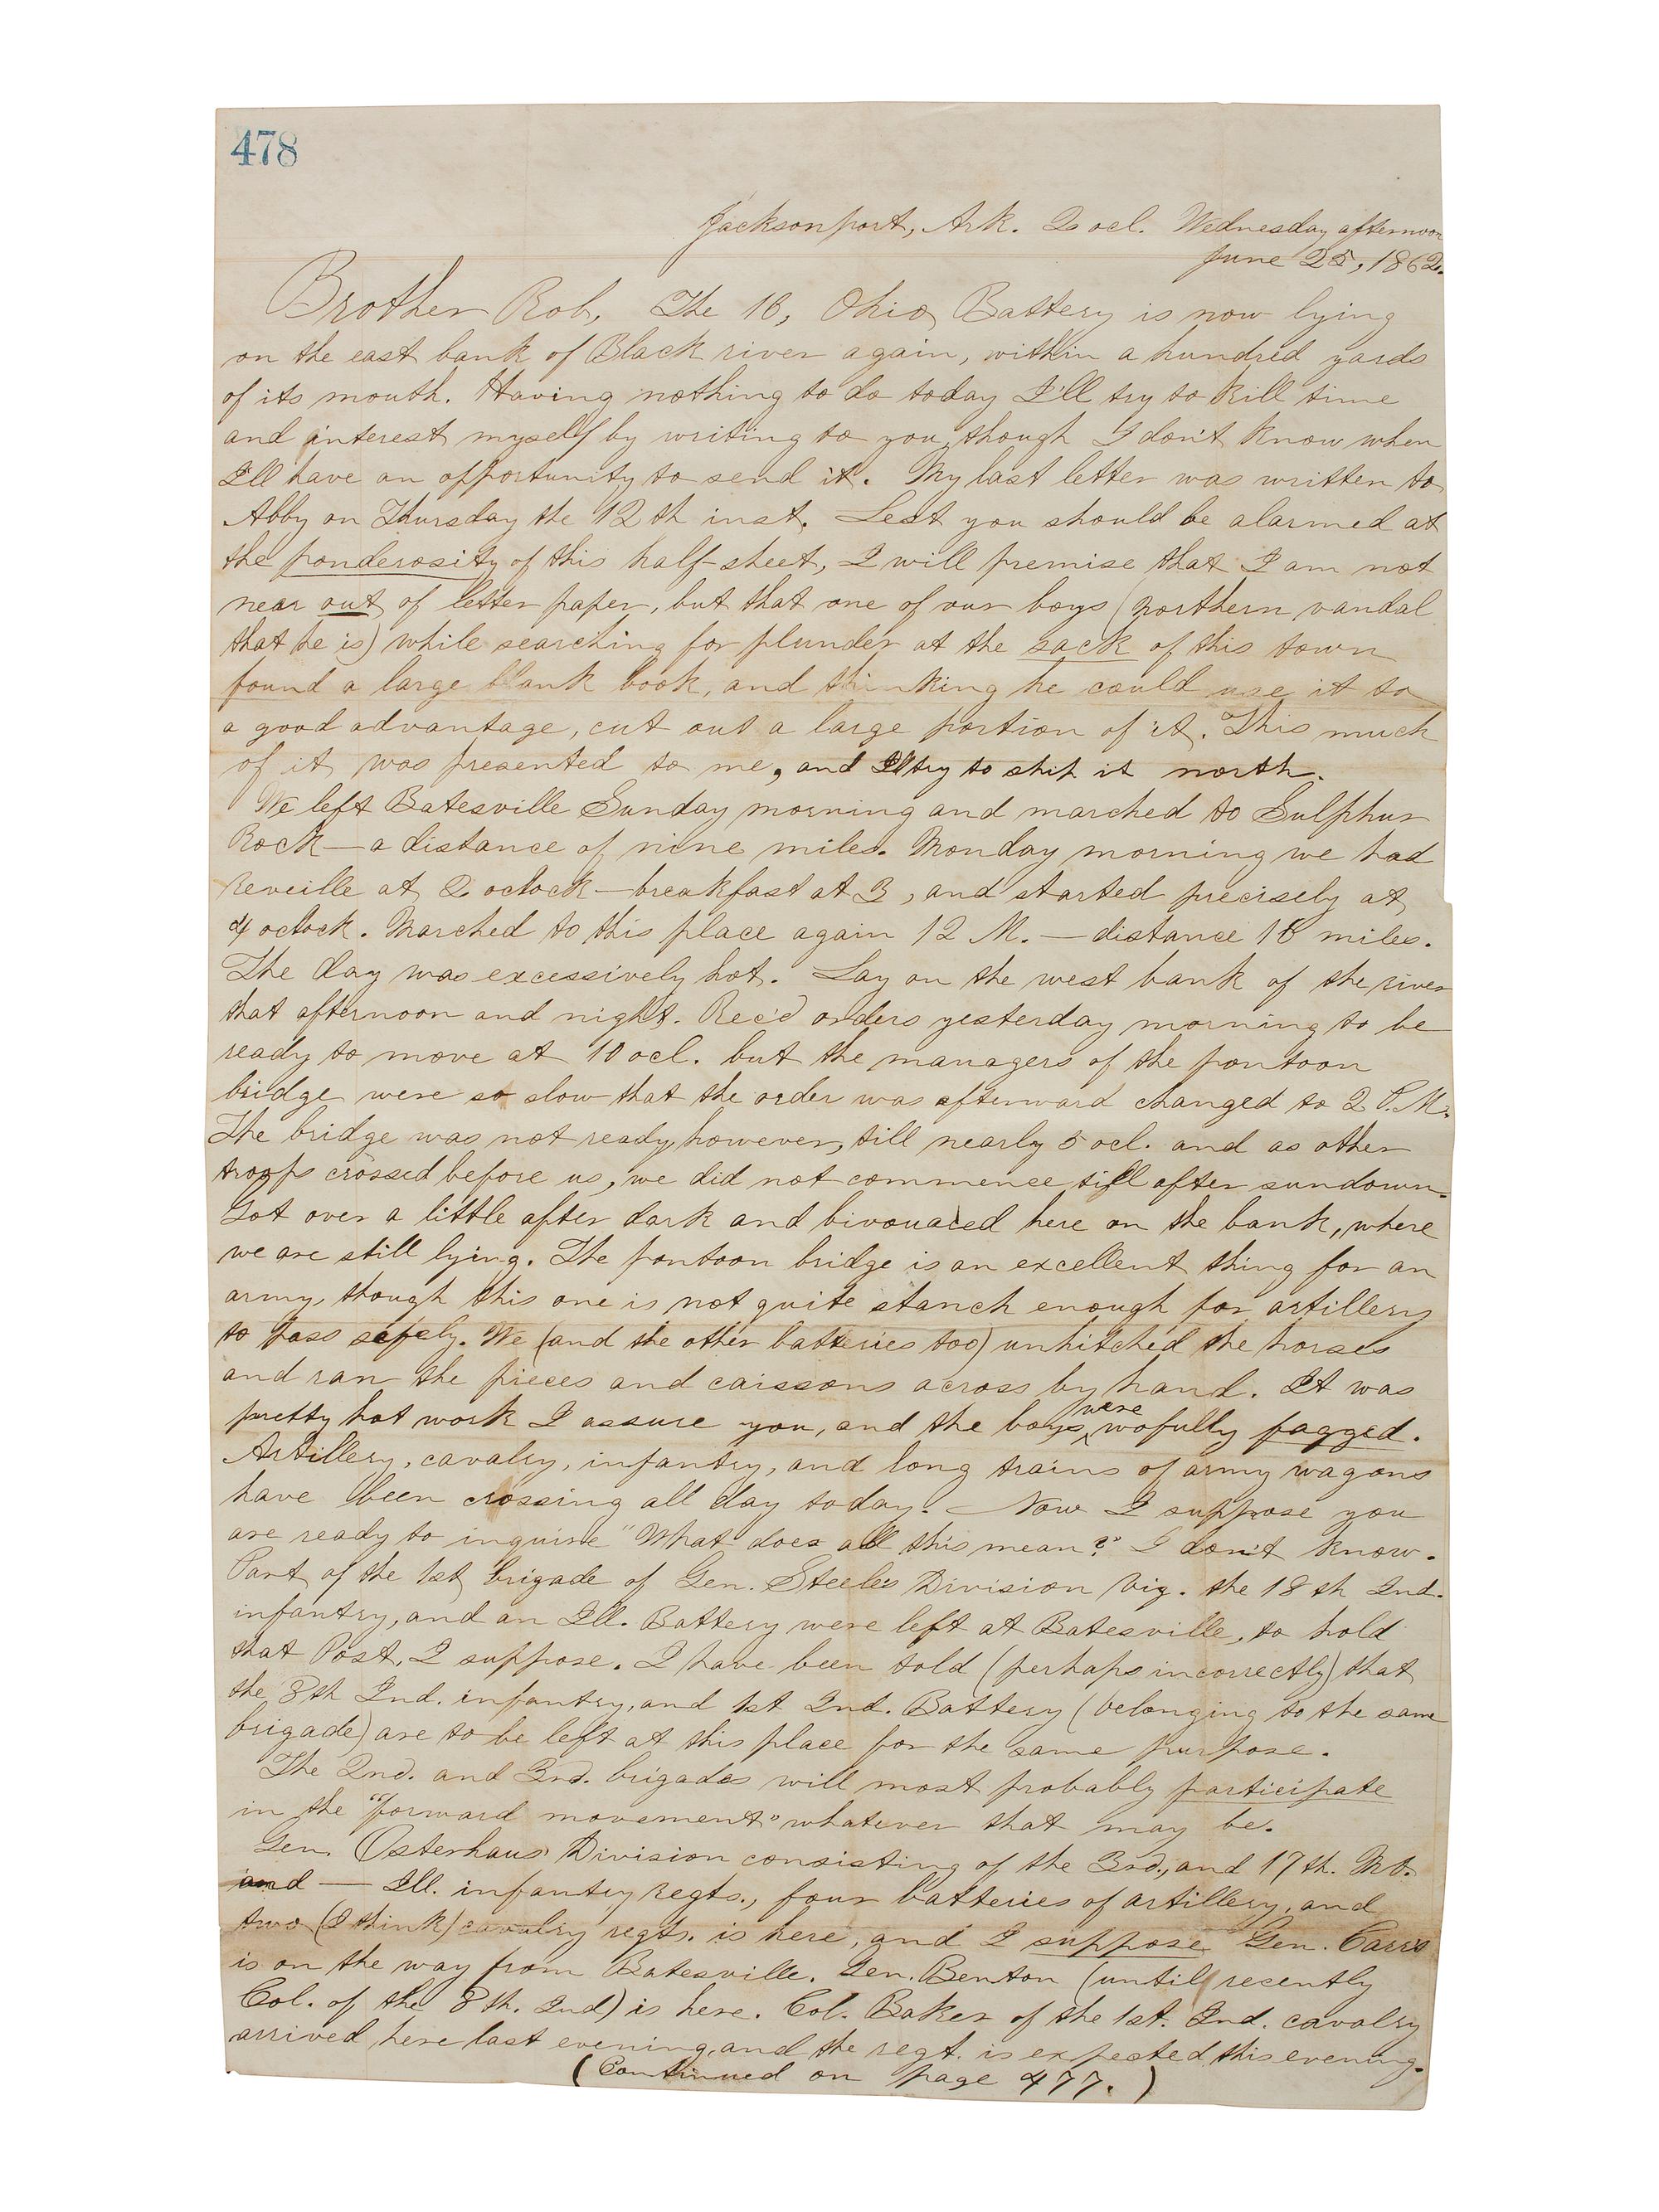 478
Jacksonport, Ark. 2 ocl. Wednesday afternoon
June 25, 1862.
Brother Rob, The 16, Ohio Battery is now lying
on the east bank of Black river again, within a hundred yards
of its mouth. Having nothing to do today I'll try to kill time
and interest myself by writing to you, though I don't know when
I'll have an opportunity to send it. My last letter was written to
Abby on Thursday the 12th inst. Lest you should be alarmed at
the ponderosity of this half-sheet, I will premise that I am not
near out of letter paper, but that one of our boys (northern vandal
that he is) while searching for plunder at the sack of this town
found a large blank book, and thinking he could use it to
a good advantage, cut out a large portion of it. This much
of it was presented to me, and I'll try to ship it north.
We left Batesville Sunday morning and marched to Sulphur
Rock — a distance of nine miles. Monday morning we had
Reveille at 2 oclock — breakfast at 3, and started precisely at
4 oclock. Marched to this place again 12 M. — distance 16 miles.
The day was excessively hot. Lay on the west bank of the river
that afternoon and night. Rec'd orders yesterday morning to be
ready to move at 10 ocl. but the managers of the pontoon
bridge were so slow that the order was afterward changed to 2 P.M.
The bridge was not ready, however, till nearly 5 ocl. and as other
troops crossed before us, we did not commence till after sundown.
Got over a little after dark and bivouaced here on the bank, where
we are still lying. The pontoon bridge is an excellent thing for an
army, though this one is not quite stanch enough for artillery
to pass safely. We (and the other batteries too) unhitched the horses
and ran the pieces and caissons across by hand. It was
pretty hot work I assure you, and the boys were wofully fagged.
Artillery, cavalry, infantry, and long trains of army wagons
have been crossing all day today. Now I suppose you
are ready to inquire "What does all this mean?" I don't know.
Part of the 1st brigade of Gen. Steele's Division viz. the 18th Ind.
infantry, and an Ill. Battery were left at Batesville, to hold
that Post, I suppose. I have been told (perhaps incorrectly) that
the 8th Ind. infantry, and 1st Ind. Battery (belonging to the same
brigade) are to be left at this place for the same purpose.
The 2nd. and 3rd. brigades will most probably participate
in the "forward movement" whatever that may be.
Gen. Osterhaus' Division consisting of the 3rd, and 17th. Mo.
and — Ill. infantry Regts., four batteries of artillery, and
two (I think) cavalry regts. is here, and I suppose Gen. Carr's
is on the way from Batesville. Gen. Benton (until recently
Col. of the 8th. Ind) is here. Col. Baker of the 1st. Ind. cavalry
arrived here last evening, and the regt. is expected this evening.
(Continued on page 477.)